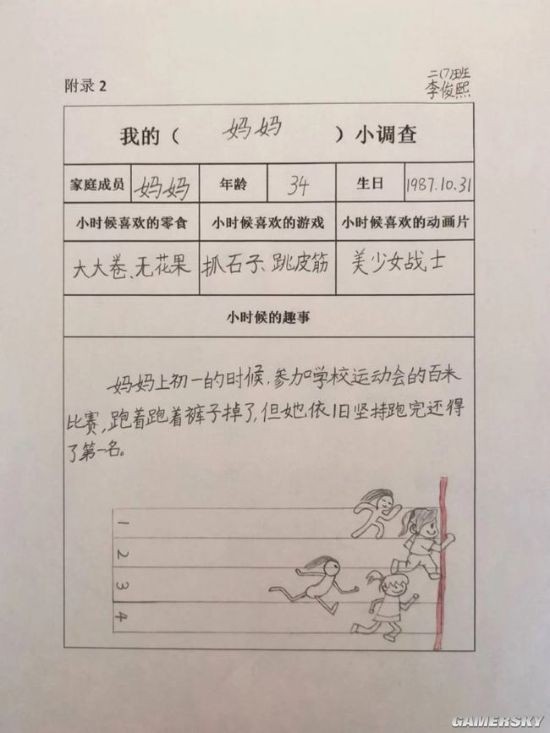 附录 2
二(7)班
李俊熙
我的（ 妈妈 ）小调查
家庭成员 妈妈 年龄 34 生日 1987.10.31
小时候喜欢的零食 小时候喜欢的游戏 小时候喜欢的动画片
大大卷、无花果 抓石子、跳皮筋 美少女战士
小时候的趣事
妈妈上初一的时候，参加学校运动会的百米
比赛，跑着跑着裤子掉了，但她依旧坚持跑完还得
了第一名。
1
2
3
4
GAMERSKY